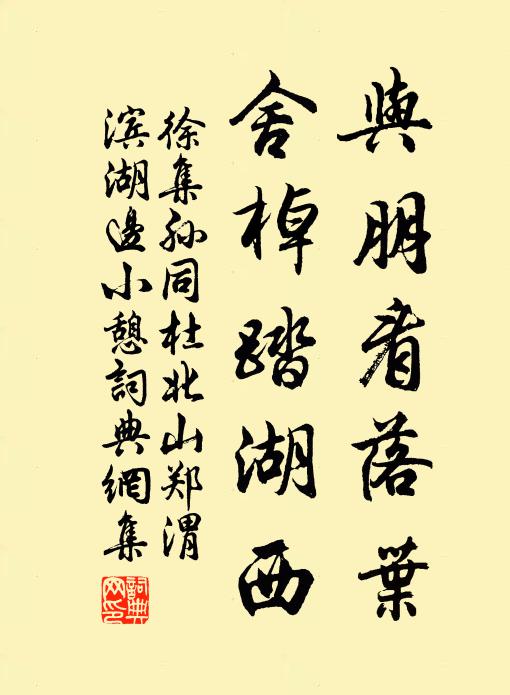 與朋看落葉
舍棹踏湖西
徐集孙同杜北山郑渭
滨湖邊小憩詞典網集
詞典網印